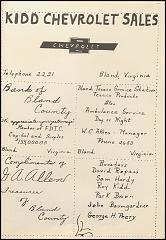 KIDD CHEVROLET SALES
CHEVROLET
Telephone 2231
Bland, Virginia
Bank of
Bland
County
We appreciate your patronage
Member of F.D.I.C.
Capital and Surplus
Bland Virginia
Compliments of
J.A. Allen
Treasurer
of
Bland
County
Bland Texaco Service Station
Texaco Products
Also
Ambulance Service
Day or Night
W.C. Allen - Manager
Phone
Bland, Virginia
Boosters
David Repass
Sam Hardy
Roy Kidd
Park Brown
John Baumgardner
George H. Peery